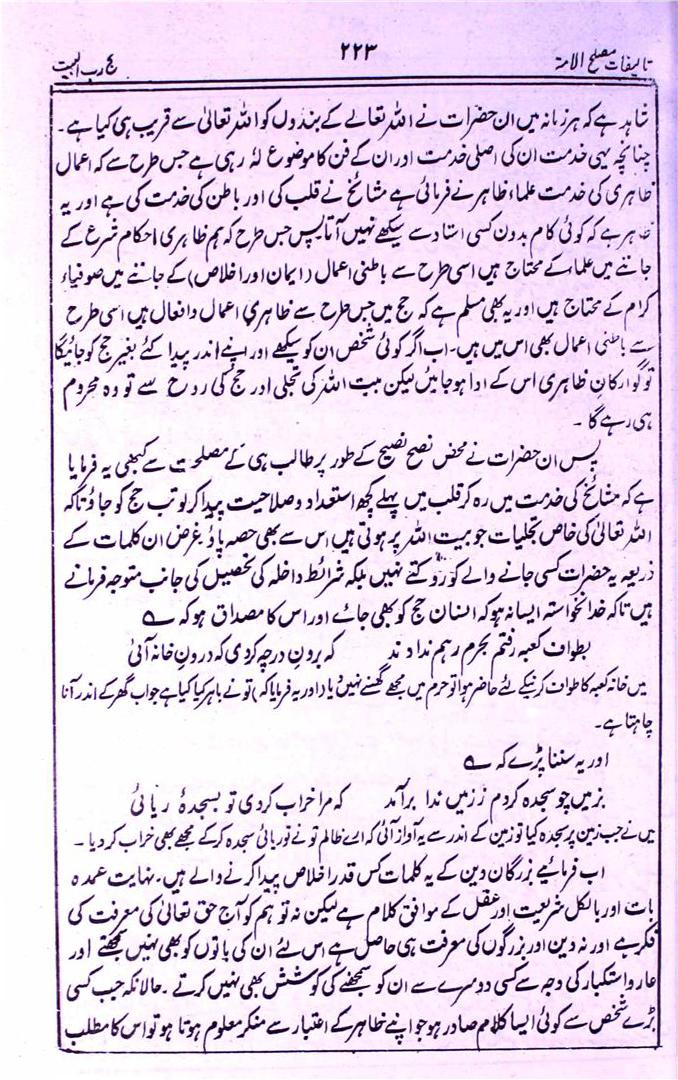 تالیفات مصلح الامۃ
۲۲۳
حج رب البیت
شاہد ہے کہ ہر زمانہ میں ان حضرات نے اللہ تعالے کے بندوں کو اللہ تعالیٰ سے قریب ہی کیا ہے۔
چنانچہ یہی خدمت ان کی اصلی خدمت اور ان کے فن کا موضوع لہٗ رہی ہے جس طرح سے کہ اعمال
ظاہری کی خدمت علماء ظاہر نے فرمائی ہے مشائخ نے قلب کی اور باطن کی خدمت کی ہے اور یہ
ظاہر ہے کہ کوئی کام بدون کسی استاد سے سیکھے نہیں آتا پس جس طرح کہ ہم ظاہری احکام شرع کے
جاننے میں علماء کے محتاج ہیں اسی طرح سے باطنی اعمال (ایمان اور اخلاص) کے جاننے میں صوفیاء
کرام کے محتاج ہیں اور یہ بھی مسلم ہے کہ حج میں جس طرح سے ظاہری اعمال وافعال ہیں اسی طرح
سے باطنی اعمال بھی اس میں ہیں۔ اب اگر کوئی شخص ان کو سیکھے اور اپنے اندر پیدا کئے بغیر حج کو جائیگا
تو گو ارکان ظاہری اس کے ادا ہو جائیں لیکن بیت اللہ کی تجلی اور حج کی روح سے تو وہ محروم
ہی رہے گا۔
پس ان حضرات نے محض نصح نصیح کے طور پر طالب ہی کے مصلحت سے کبھی یہ فرمایا
ہے کہ مشائخ کی خدمت میں رہ کر قلب میں پہلے کچھ استعداد وصلاحیت پیدا کرلو تب حج کو جاؤ تاکہ
اللہ تعالیٰ کی خاص تجلیات جو بیت اللہ پر ہوتی ہیں اس سے بھی حصہ پاؤ بغرض ان کلمات کے
ذریعہ یہ حضرات کسی جانے والے کو روکتے نہیں بلکہ شرائط داخلہ کی تحصیل کی جانب متوجہ فرماتے
ہیں تاکہ خدانخواستہ ایسا نہ ہو کہ انسان حج کو بھی جائے اور اس کا مصداق ہو کہ ؎
بطواف کعبہ رفتم بحرم رہم ندادند کہ برون درچہ کردی کہ درونِ خانہ آئی
میں خانہ کعبہ کا طواف کرنیکے لئے حاضر ہوا تو حرم میں مجھے گھسنے نہیں دیا (اور یہ فرمایا کہ) تو نے باہر کیا کیا ہے جو اب گھر کے اندر آنا
چاہتا ہے۔
اور یہ سننا پڑے کہ ؎
بزمیں چو سجدہ کردم ززمیں ندا برآمد کہ مرا خراب کردی تو بسجدۂ ریائی
میں نے جب زمین پر سجدہ کیا تو زمین کے اندر سے یہ آواز آئی کہ اے ظالم تو نے تو ریائی سجدہ کر کے مجھے بھی خراب کر دیا۔
اب فرمائیے بزرگان دین کے یہ کلمات کس قدر اخلاص پیدا کرنے والے ہیں۔ نہایت عمدہ
بات اور بالکل شریعت اور عقل کے موافق کلام ہے لیکن نہ تو ہم کو آج حق تعالیٰ کی معرفت کی
فکر ہے اور نہ دین اور بزرگوں کی معرفت ہی حاصل ہے اس لئے ان کی باتوں کو بھی نہیں سمجھتے اور
عار واستکبار کی وجہ سے کسی دوسرے سے ان کو سمجھنے کی کوشش بھی نہیں کرتے۔ حالانکہ جب کسی
بڑے شخص سے کوئی ایسا کلام صادر ہو جو اپنے ظاہر کے اعتبار سے منکر معلوم ہوتا ہو تو اس کا مطلب